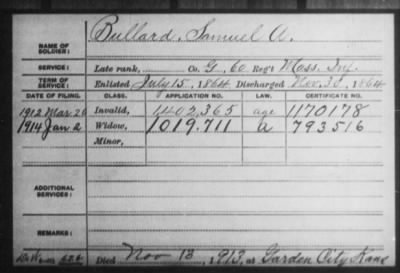 Bullard, Samuel A.
NAME OF
SOLDIER:
SERVICE: Late rank, Co. G, 60 Reg't Mass. Inf.
TERM OF
SERVICE: Enlisted July 15, 1864 Discharged Nov. 30, 1864
DATE OF FILING. CLASS. APPLICATION NO. LAW. CERTIFICATE NO.
1912 Mar 20 Invalid, 1,402,365 age 1170178
1914 Jan 2 Widow, 1019,711 a 793516
Minor,
ADDITIONAL
SERVICES:
REMARKS:
Died Nov 13, 1913, at Garden City Kans